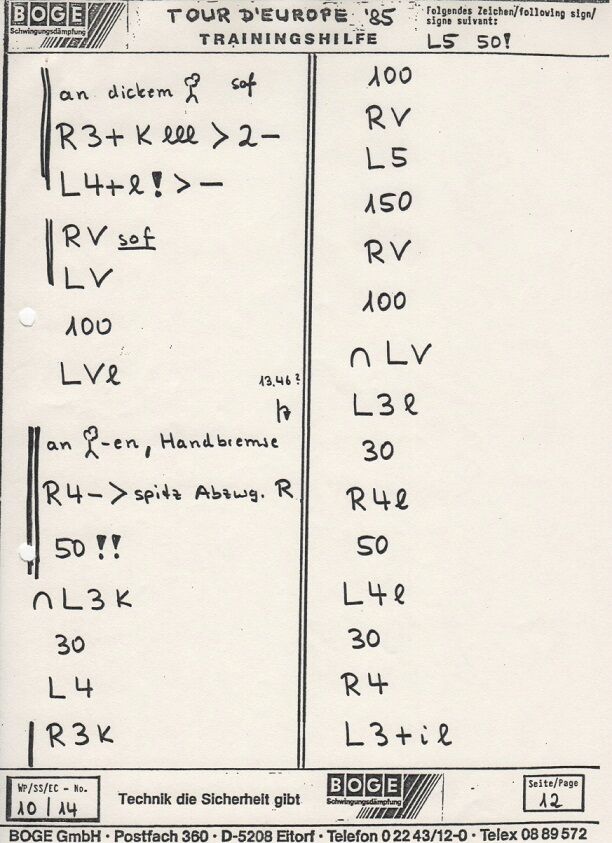 BOGE
Schwingungsdämpfung
TOUR D'EUROPE '85
TRAININGSHILFE
folgendes Zeichen/following sign/
signe suivant:
L5 50!
an dickem sof
R3+ K lll > 2 –
L4+l! > –
RV sof
LV
100
LVl
13.46?
an -en, Handbremse
R4 – > spitz Abzwg. R
50 !!
∩ L3 K
30
L4
R3K
100
RV
L5
150
RV
100
∩ LV
L3 l
30
R4l
50
L4l
30
R4
L3+il
WP/SS/EC - No.
10 / 14
Technik die Sicherheit gibt
BOGE
Schwingungsdämpfung
Seite/Page
12
BOGE GmbH · Postfach 360 · D-5208 Eitorf · Telefon 0 22 43/12-0 · Telex 08 89 572